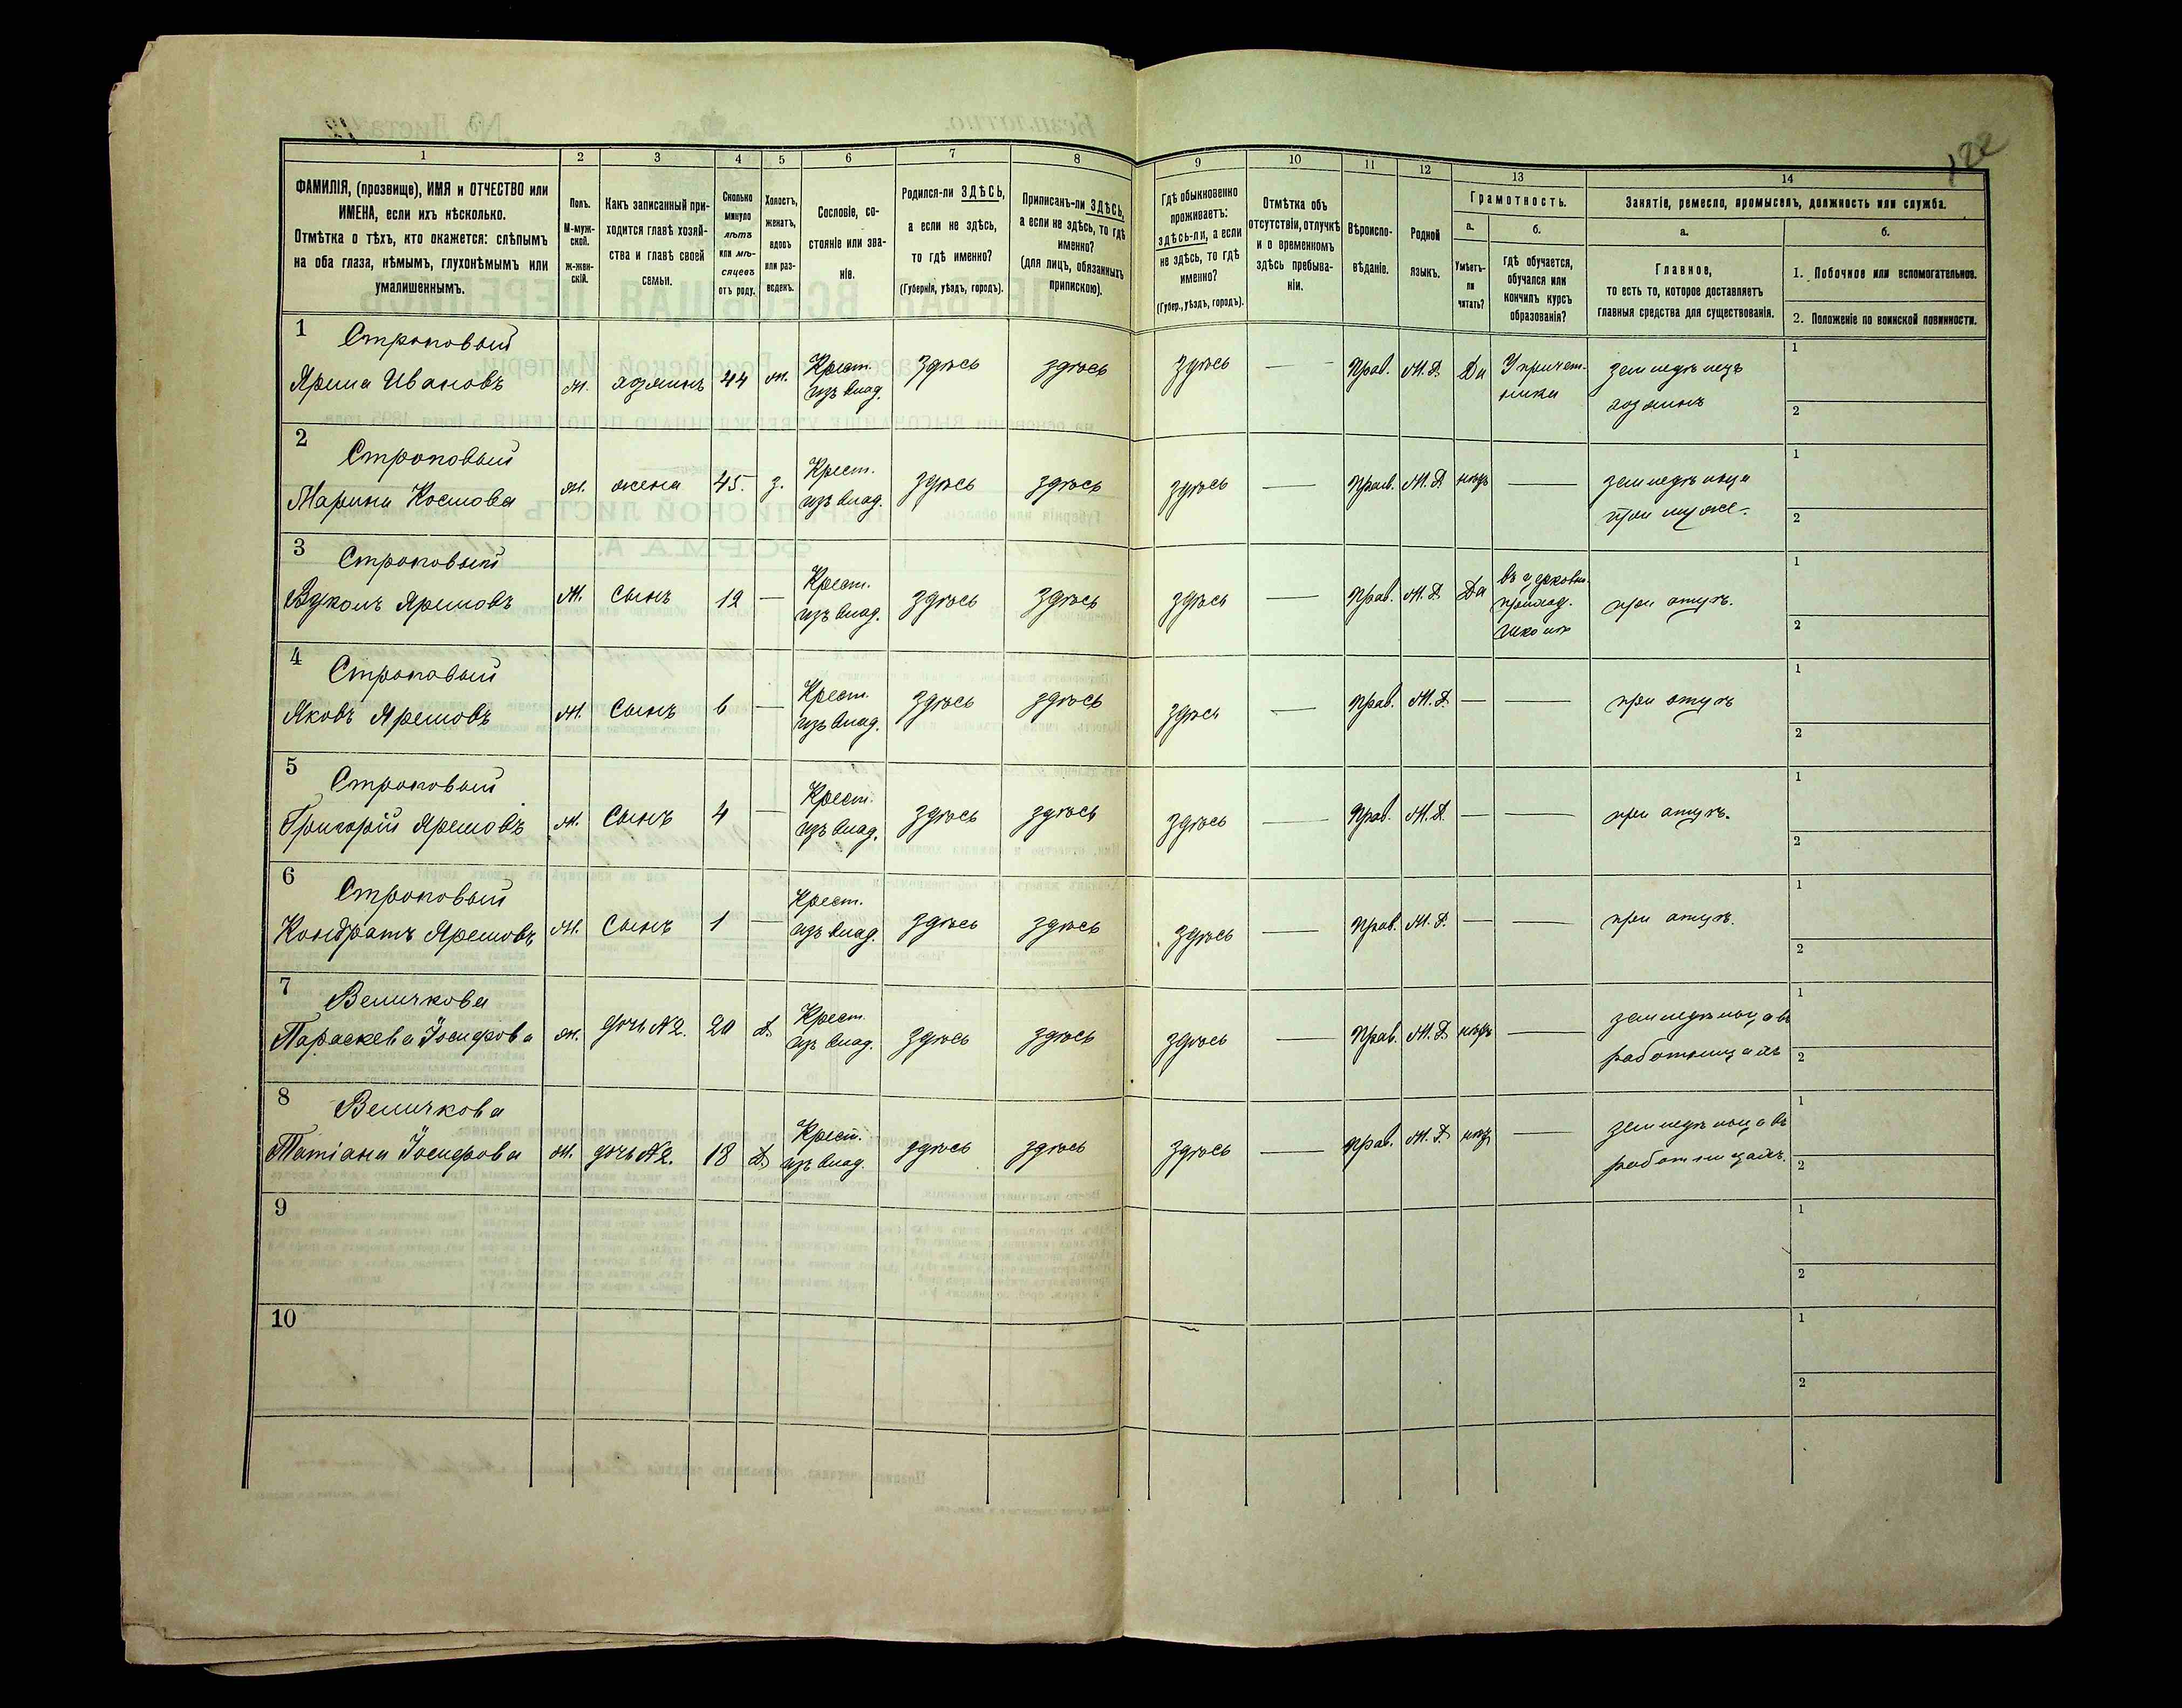 122
1 2 3 4 5 6 7 8 9 10 11 12 13 14
ФАМИЛІЯ, (прозвище), ИМЯ и ОТЧЕСТВО или
ИМЕНА, если ихъ нѣсколько.
Отмѣтка о тѣхъ, кто окажется: слѣпымъ
на оба глаза, нѣмымъ, глухонѣмымъ или
умалишеннымъ.
Полъ.
М-муж-
ской.
ж-жен-
скій.
Какъ записанный при-
ходится главѣ хозяй-
ства и главѣ своей
семьи.
Сколько
минуло
лѣтъ
или мѣ-
сяцевъ
отъ роду.
Холостъ,
женатъ,
вдовъ
или раз-
веденъ.
Сословіе, со-
стояніе или зва-
ніе.
Родился-ли ЗДѢСЬ,
а если не здѣсь,
то гдѣ именно?
(Губернія, уѣздъ, городъ).
Приписанъ-ли ЗДѢСЬ,
а если не здѣсь, то гдѣ
именно?
(для лицъ, обязанныхъ
припискою).
Гдѣ обыкновенно
проживаетъ:
здѣсь-ли, а если
не здѣсь, то гдѣ
именно?
(Губер., уѣздъ, городъ).
Отмѣтка объ
отсутствіи, отлучкѣ
и о временномъ
здѣсь пребыва-
ніи.
Вѣроиспо-
вѣданіе.
Родной
языкъ.
Грамотность.
а.
Умѣетъ-
ли
читать?
б.
гдѣ обучается,
обучался или
кончилъ курсъ
образованія?
Занятіе, ремесло, промыселъ, должность или служба.
а.
Главное,
то есть то, которое доставляетъ
главныя средства для существованія.
б.
1. Побочное или вспомогательное.
2. Положеніе по воинской повинности.
1 Строковый
Ярема Ивановъ м. хозяинъ 44 ж. Крест. изъ влад. здѣсь здѣсь здѣсь — Прав. М.Р. Да У причет-
ника земледѣлецъ
хозяинъ
1
2
2 Строковый
Марина Космова ж. жена 45. з. Крест. изъ влад. здѣсь здѣсь здѣсь — Прав. М.Р. нѣтъ — земледѣлица
при муже.
1
2
3 Строковый
Вуколъ Яремовъ М. сынъ 12 — Крест. изъ влад. здѣсь здѣсь здѣсь — Прав. М.Р. Да въ церковно-
приход.
школѣ при отцѣ.
1
2
4 Строковый
Яковъ Яремовъ М. сынъ 6 — Крест. изъ влад. здѣсь здѣсь здѣсь — Прав. М.Р. — — при отцѣ
1
2
5 Строковый
Григорій Яремовъ м. сынъ 4 — Крест. изъ влад. здѣсь здѣсь здѣсь — Прав. М.Р. — — при отцѣ.
1
2
6 Строковый
Кондратъ Яремовъ М. сынъ 1 — Крест. изъ влад. здѣсь здѣсь здѣсь — Прав. М.Р. — — при отцѣ.
1
2
7 Величкова
Параскева Іосифова ж. дочь №2. 20 д. Крест. изъ влад. здѣсь здѣсь здѣсь — Прав. М.Р. нѣтъ — земледѣлица въ
работницахъ
1
2
8 Величкова
Татіана Іосифова ж. дочь №2. 18 д. Крест. изъ влад. здѣсь здѣсь здѣсь — прав. М.Р. нѣтъ — земледѣлица въ
работницахъ.
1
2
9
1
2
10
1
2